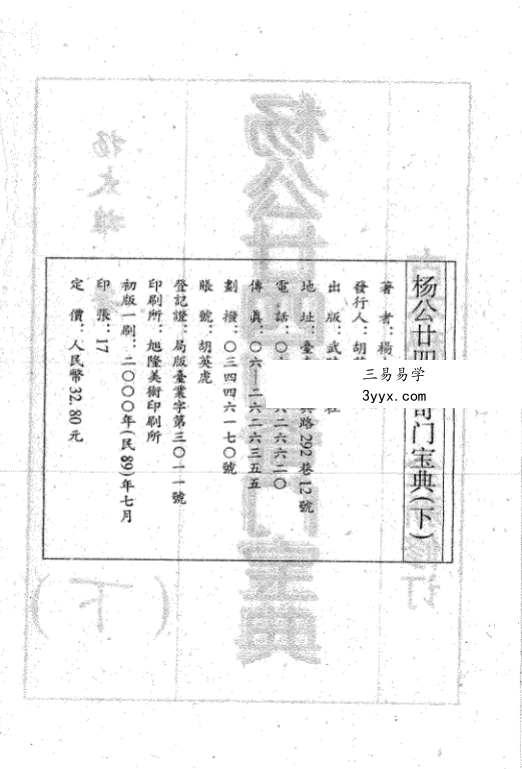 杨公廿四 奇门宝典(下)
著　者：楊
發行人：胡
出　版：武 社
地　址：臺 路292巷12號
電　話：〇 六二六六二〇
傳　真：〇六—二六二六三五五
劃　撥：〇三四四六一七〇號
賬　號：胡英虎
登記證：局版臺業字第三〇一一號
印刷所：旭隆美術印刷所
初版一刷：二〇〇〇年(民89)年七月
印　張：17
定　價：人民幣32.80元
三易易学
3yyx.com